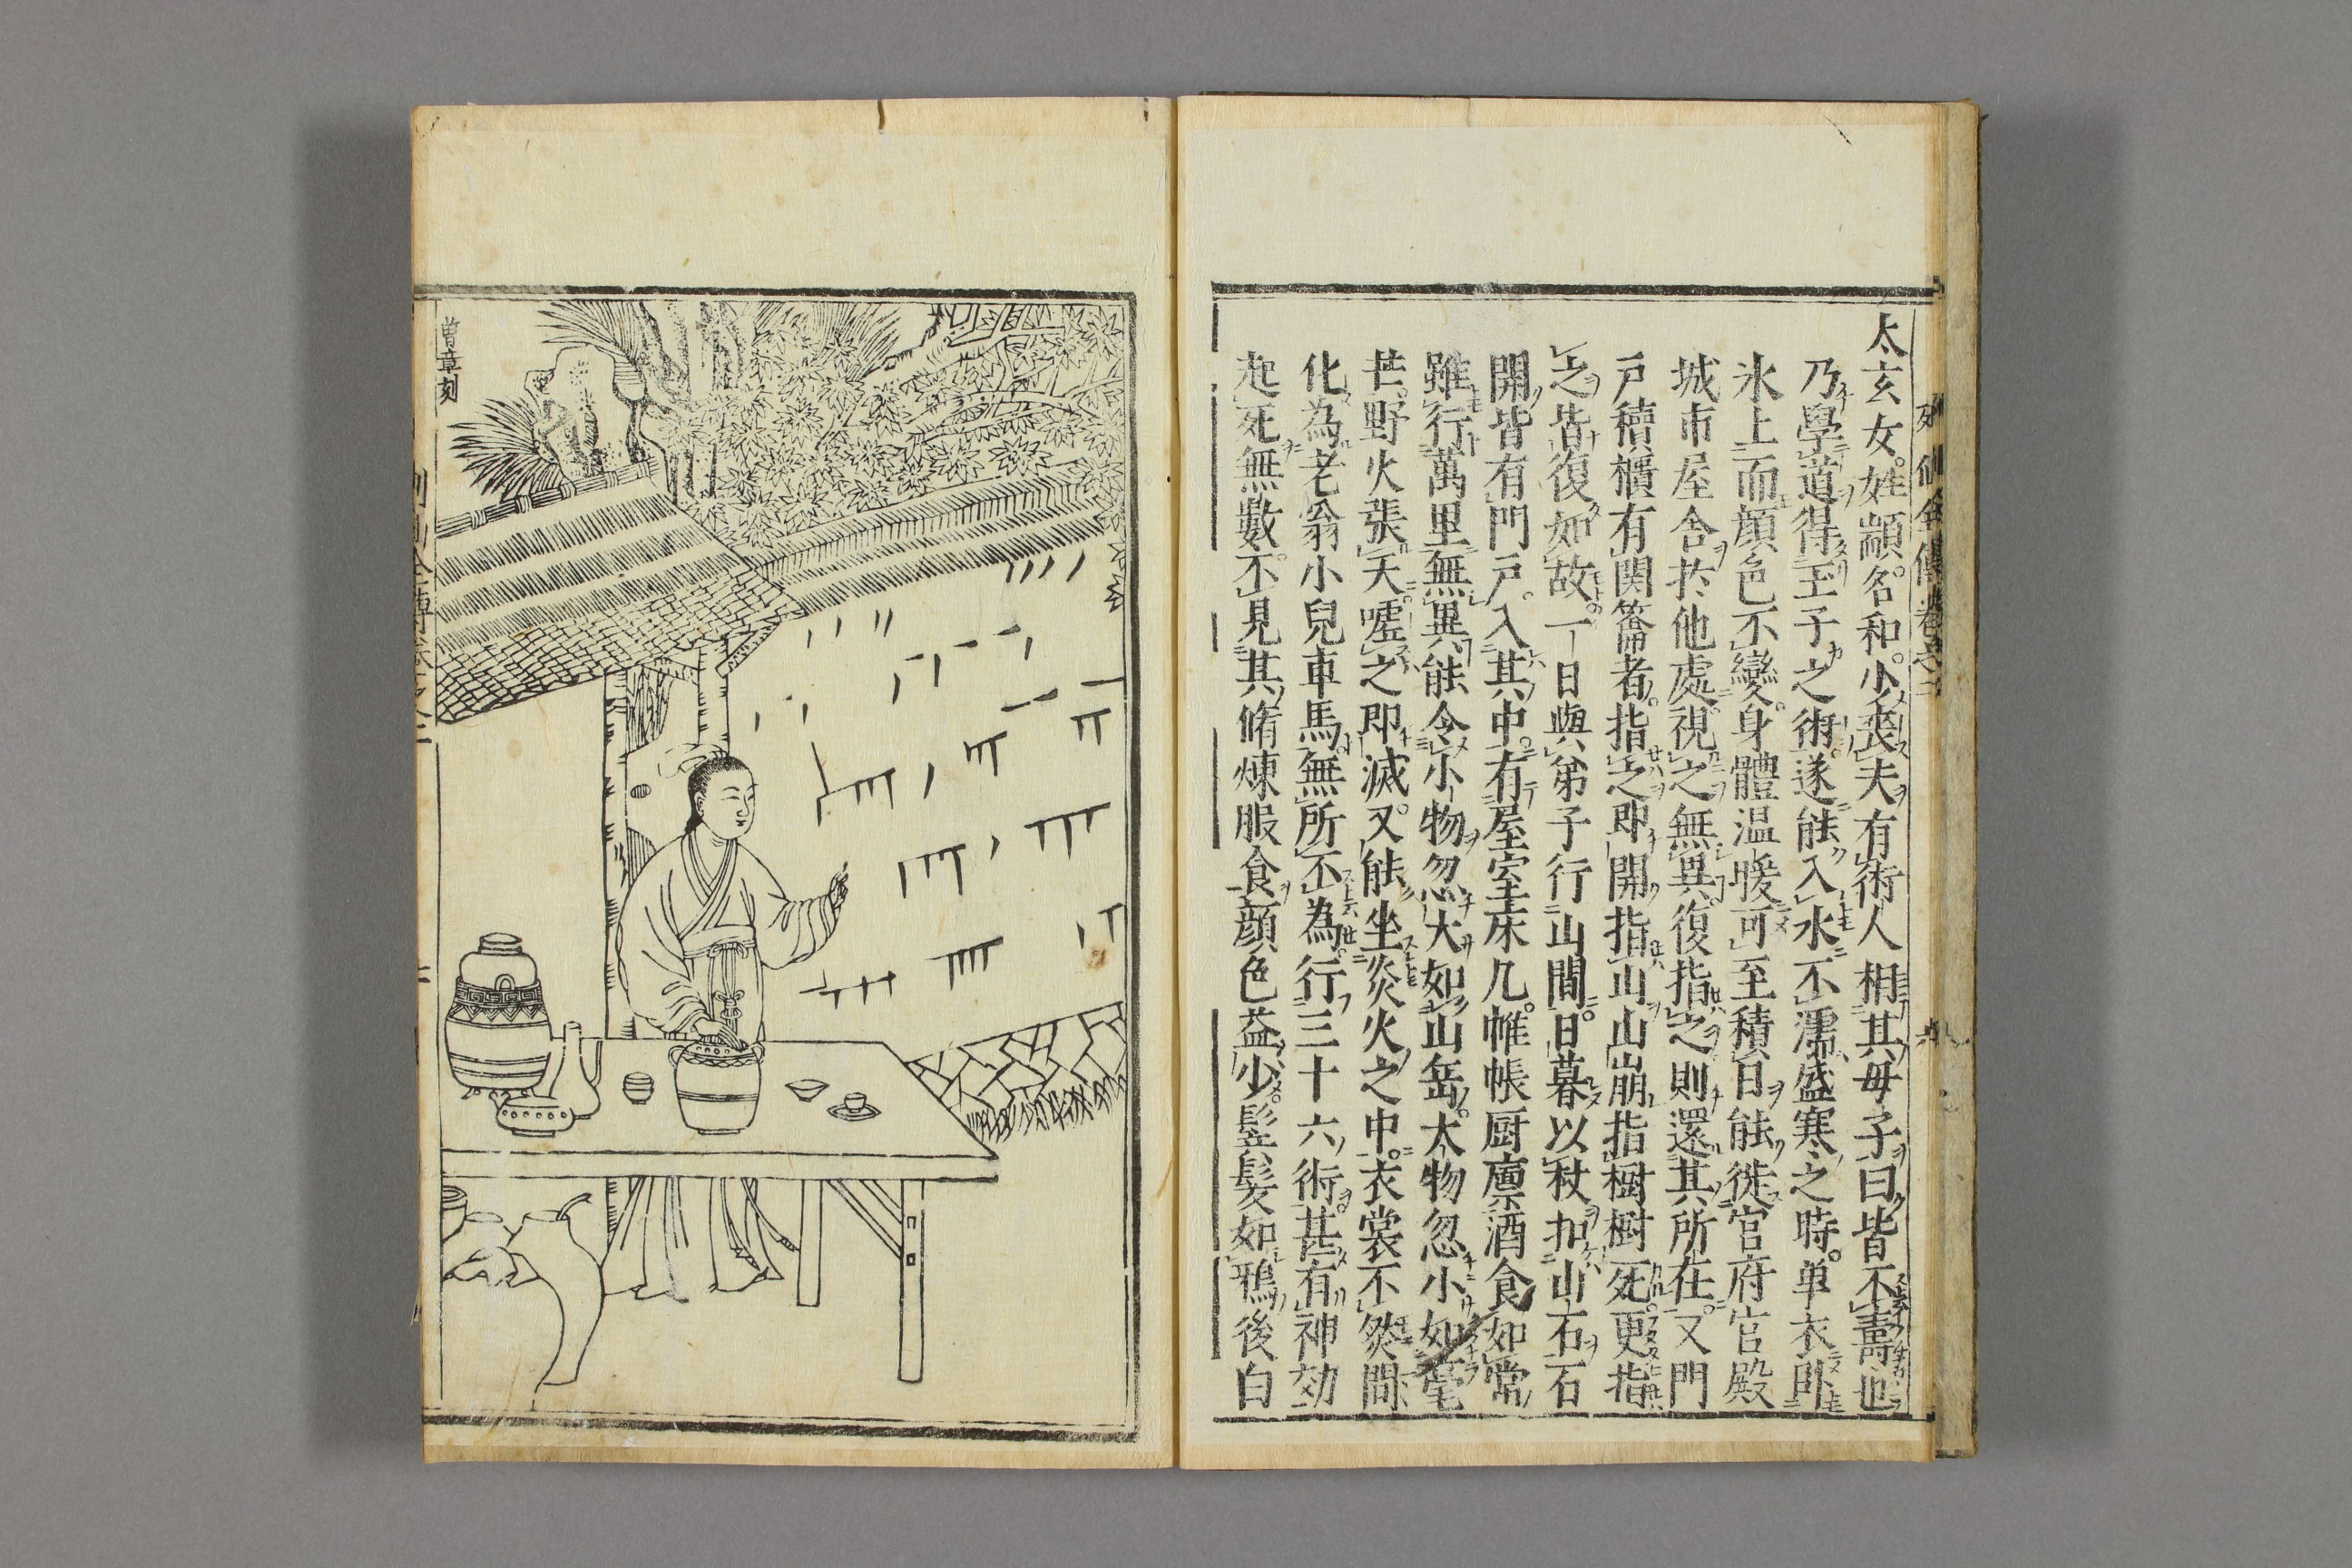 列仙全傳卷之二
太玄女。姓顓名和。少喪夫有術人相其母子曰皆不壽也
乃學道得玉子之術。遂能入水不濡盛寒之時。单衣卧
氷上而顔色不變。身體温暖可至積日能徙官府宫殿
城市屋舎於他處。視之無異復指之則還其所在。又門
戸積櫃有関籥者。指之即開指山山崩指樹樹死。更指
之皆復如故。一日與弟子行山間。日暮以杖扣山石石
開皆有門戸。入其中。有屋室床几。帷帳厨廪酒食如常
雖行萬里無異能令小物忽大如山岳。大物忽小如毫
芒。野火張天嘘之即滅。又能坐炎火之中。衣裳不焚間
化為老翁小兒車馬無所不為。行三十六術。甚有神効
起死無數。不見其脩煉服食顔色益少。鬓髪如鴉後白
曽章刻